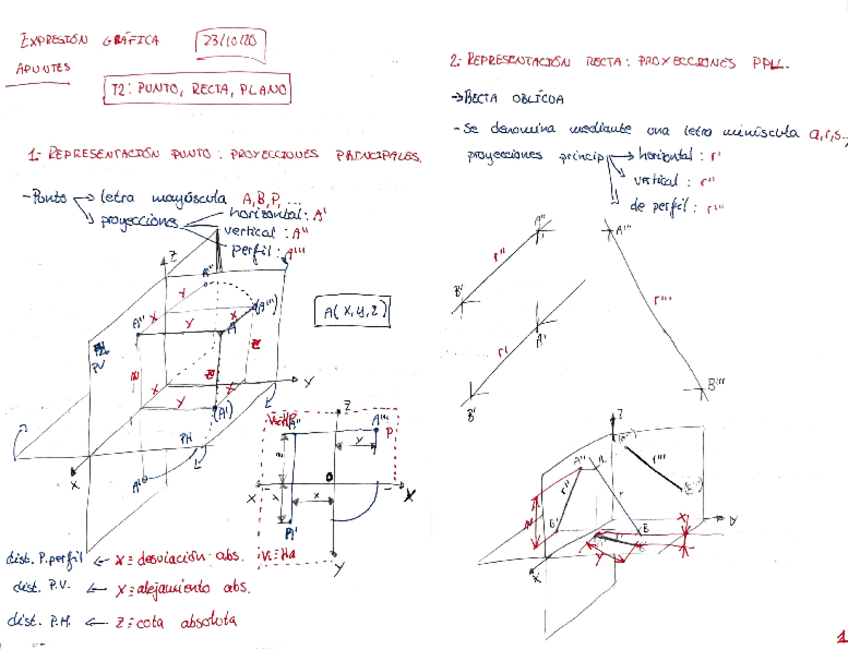 EXPRESIÓN GRÁFICA
23/10/20
APUNTES
T2: PUNTO, RECTA, PLANO
1- REPRESENTACIÓN PUNTO: PROYECCIONES PRINCIPALES.
- Punto → letra mayúscula A, B, P, ...
↳ proyecciones → horizontal: A'
vertical: A''
perfil: A'''
Z
A''
Y
A''
X
Y
X
(A''')
A
A(x,y,z)
PV
Z
Z
X
Y
X
Y
(A')
PH
X
A'
Z
A''
A'''
P
Y
Z
O
X
X
X
A'
Y
dist. P. perfil ← X ≡ desviación abs.
dist. P.V. ← Y ≡ alejamiento abs.
dist. P.H. ← Z ≡ cota absoluta
2- REPRESENTACIÓN RECTA: PROYECCIONES PPLL.
→ RECTA OBLÍCUA
- Se denomina mediante una letra minúscula a,r,s..,
proyecciones princip → horizontal: r'
vertical: r''
de perfil: r'''
A''
A'''
r''
B'
r'''
r'
A'
B'
B'''
Z
A''
A
r'''
r''
r
B'
B
X
Y
X
1